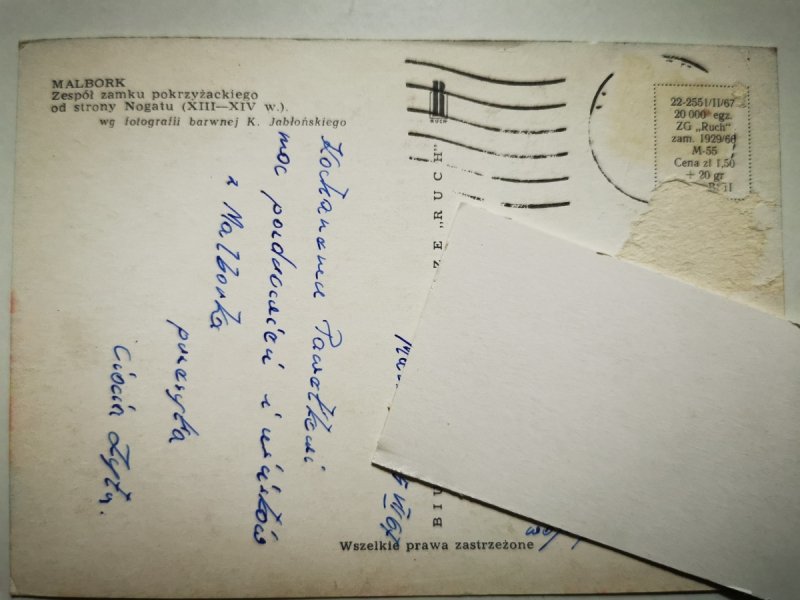 MALBORK
Zespół zamku pokrzyżackiego
od strony Nogatu (XIII—XIV w.).
wg fotografii barwnej K. Jabłońskiego
RUCH
22-2551/II/67
20 000 egz.
ZG „Ruch”
zam. 1929/66
M-55
Cena zł 1,50
+ 20 gr
Kochanemu Pawełkowi
moc pozdrowień i uścisków
z Malborka
przesyła
Ciocia Zyta.
VII 67
ZE "RUCH"
Wszelkie prawa zastrzeżone